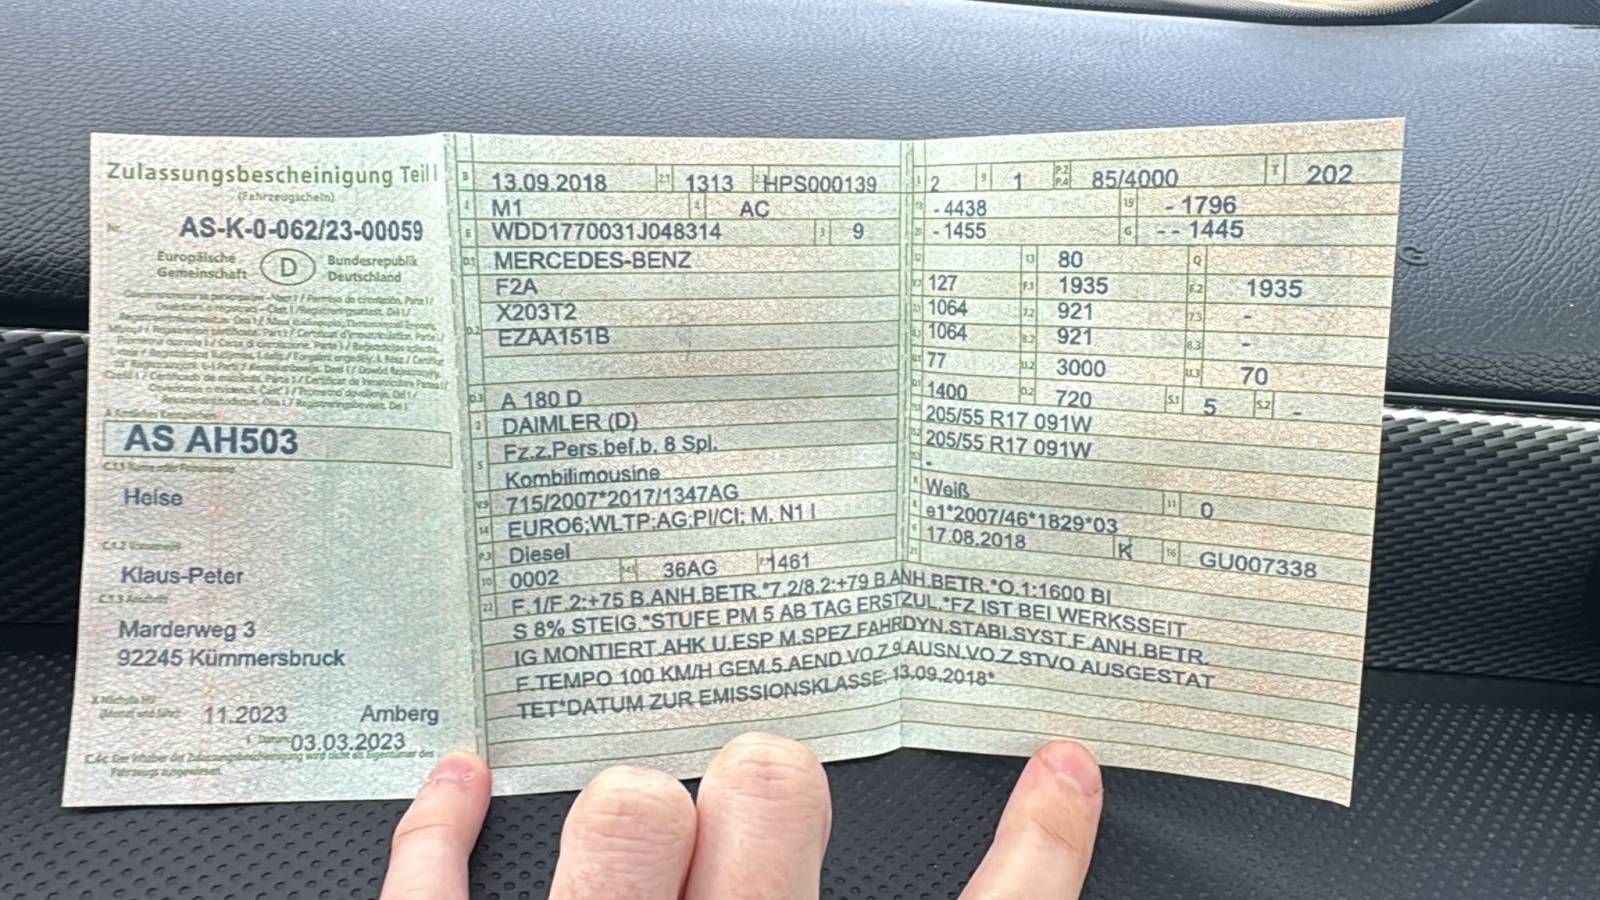 Zulassungsbescheinigung Teil I
(Fahrzeugschein)
Nr. AS-K-0-062/23-00059
Europäische Gemeinschaft D Bundesrepublik Deutschland
AS AH503
C.1.1 Name oder Firmenname
Heise
C.1.2 Vorname(n)
Klaus-Peter
C.1.3 Anschrift
Marderweg 3
92245 Kümmersbruck
11.2023 Amberg
03.03.2023
C.4c Der Inhaber der Zulassungsbescheinigung wird nicht als Eigentümer des
Fahrzeugs ausgewiesen.
B 13.09.2018 2.1 1313 HPS000139
J M1 4 AC
E WDD1770031J048314 3 9
D.1 MERCEDES-BENZ
F2A
X203T2
D.2 EZAA151B
D.3 A 180 D
2 DAIMLER (D)
Fz.z.Pers.bef.b. 8 Spl.
5 Kombilimousine
V.9 715/2007*2017/1347AG
14 EURO6;WLTP;AG;PI/CI; M, N1 I
P.3 Diesel
10 0002 14.1 36AG P.1 1461
22 F.1/F.2:+75 B.ANH.BETR.*7.2/8.2:+79 B.ANH.BETR.*O.1:1600 BI
S 8% STEIG.*STUFE PM 5 AB TAG ERSTZUL.*FZ IST BEI WERKSSEIT
IG MONTIERT.AHK U.ESP M.SPEZ.FAHRDYN.STABI.SYST.F.ANH.BETR.
F.TEMPO 100 KM/H GEM.5.AEND.VO.Z.9.AUSN.VO.Z.STVO AUSGESTAT
TET*DATUM ZUR EMISSIONSKLASSE: 13.09.2018*
L 2 9 1 P.2 P.4 85/4000 T 202
18 - 4438 19 - 1796
20 - 1455 G - - 1445
12 13 80 Q
V.7 127 F.1 1935 F.2 1935
7.1 1064 7.2 921 7.3 -
8.1 1064 8.2 921 8.3 -
U.1 77 U.2 3000 U.3 70
O.1 1400 O.2 720 S.1 5 S.2 -
15.1 205/55 R17 091W
15.2 205/55 R17 091W
15.3 -
R Weiß 11 0
K e1*2007/46*1829*03
6 17.08.2018 K 16 GU007338
21